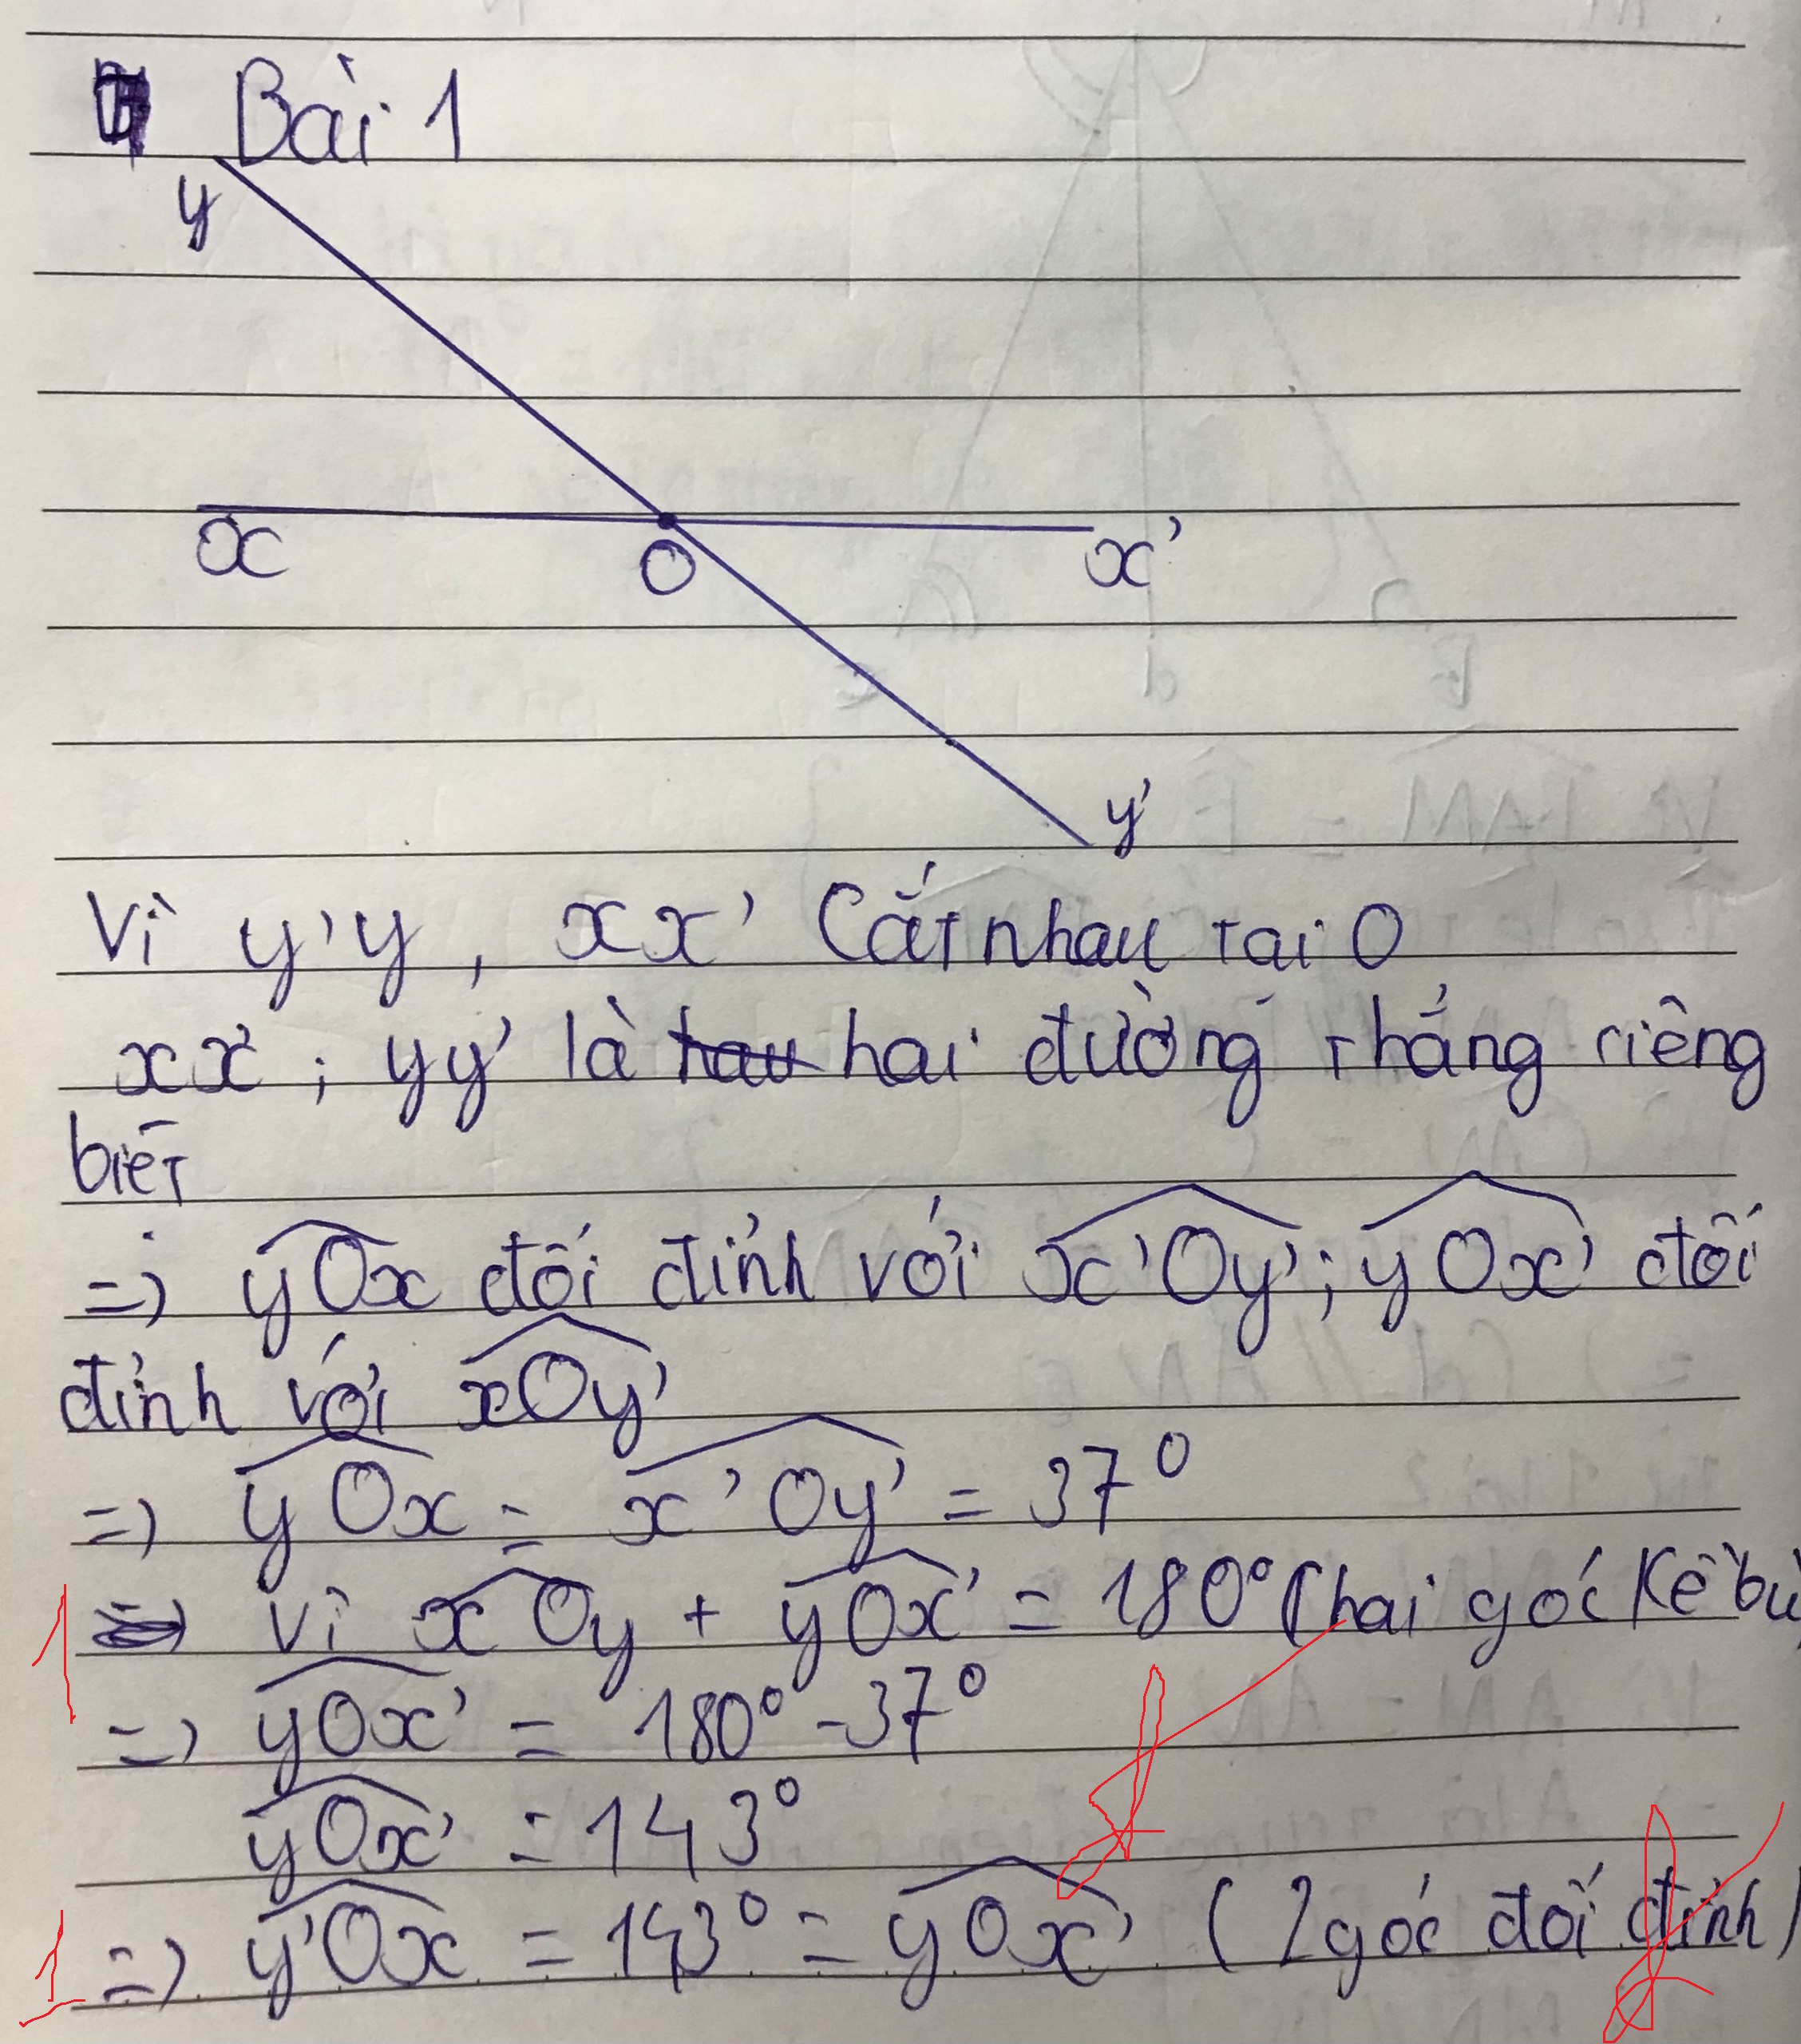 Bài 1
y
x
O
x'
y'
Vì y'y, xx' Cắt nhau tại O
xx'; yy' là hai đường thẳng riêng
biệt
=> yOx đối đỉnh với x'Oy'; yOx' đối
đỉnh với xOy'
=> yOx = x'Oy' = 37°
1 Vì xOy + yOx' = 180° (hai góc kề bù)
=> yOx' = 180° - 37°
yOx' = 143°
1 => y'Ox = 143° = yOx' (2 góc đối đỉnh)